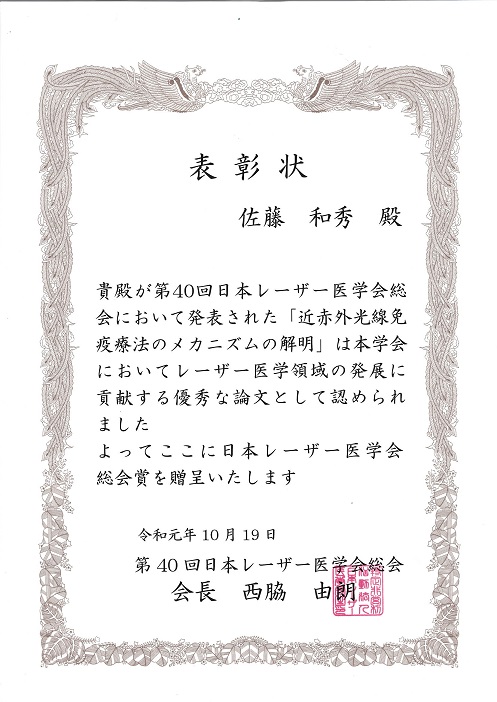 表彰状
佐藤 和秀 殿
貴殿が第40回日本レーザー医学会総
会において発表された「近赤外光線免
疫療法のメカニズムの解明」は本学会
においてレーザー医学領域の発展に
貢献する優秀な論文として認められ
ました
よってここに日本レーザー医学会
総会賞を贈呈いたします
令和元年10月19日
第40回日本レーザー医学会総会
会長 西脇 由朗